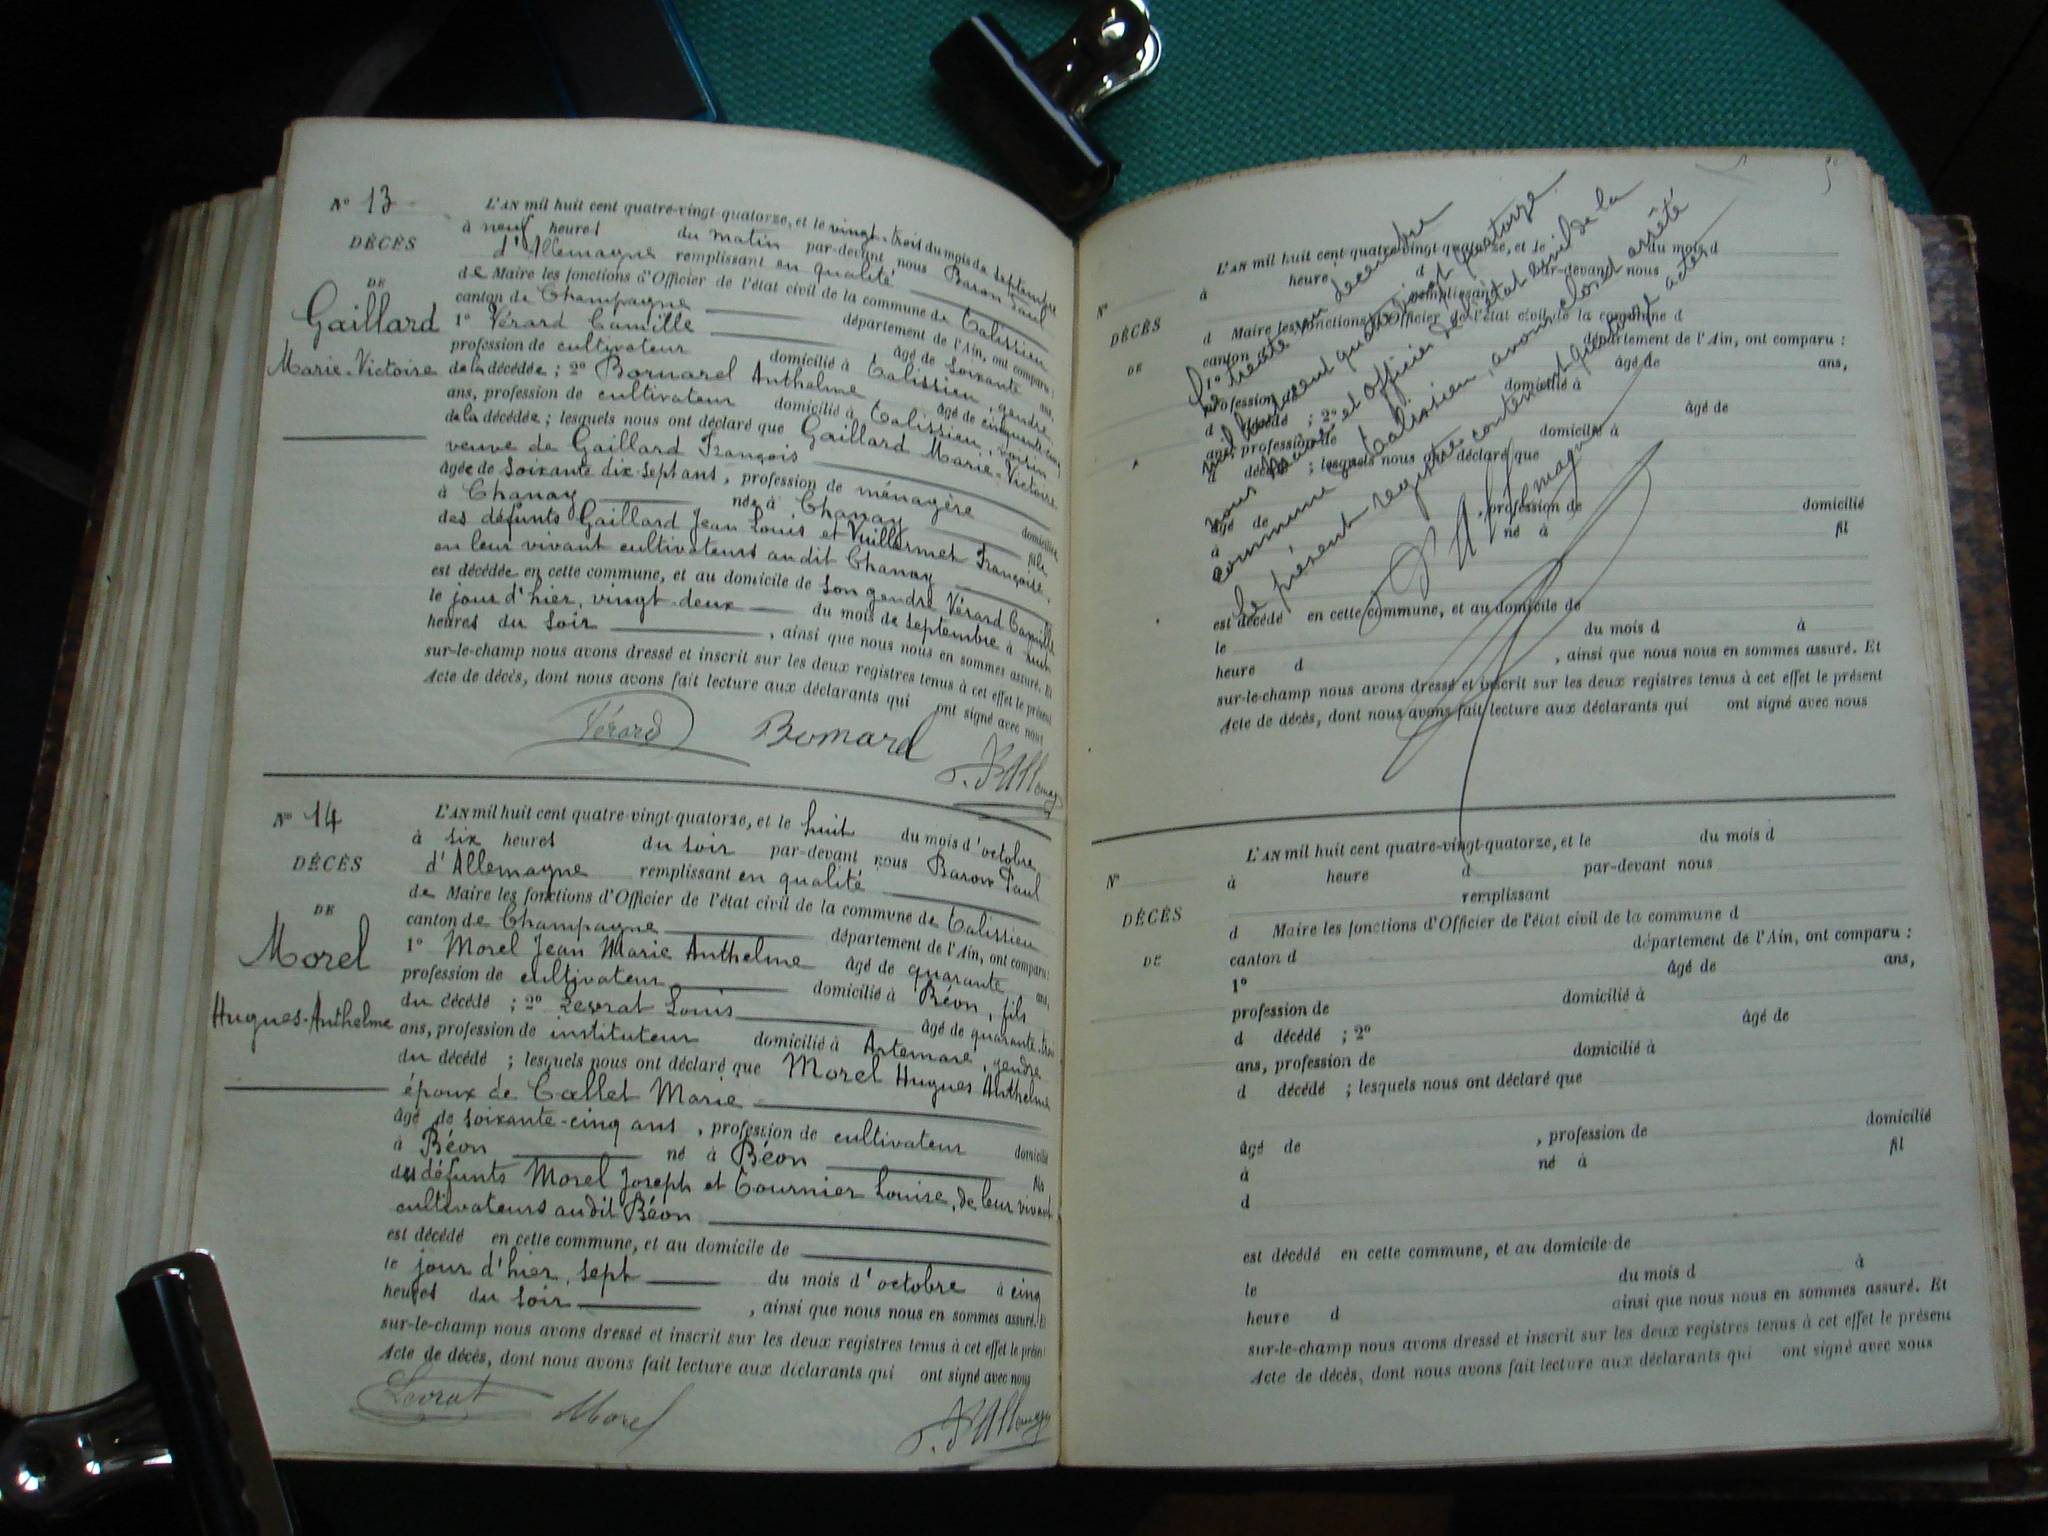 N° 13
DÉCÈS
DE
Gaillard
Marie-Victoire
L'AN mil huit cent quatre-vingt-quatorze, et le vingt-trois du mois de septembre
à neuf heures du matin par-devant nous Baron Paul
d'Allemagne remplissant en qualité
de Maire les fonctions d'Officier de l'état civil de la commune de Talissieu
canton de Champagne département de l'Ain, ont comparu :
1° Vérard Camille âgé de soixante ans,
profession de cultivateur domicilié à Talissieu, gendre
de la décédée ; 2° Bornard Anthelme âgé de cinquante-cinq
ans, profession de cultivateur domicilié à Talissieu, voisin
de la décédée ; lesquels nous ont déclaré que Gaillard Marie-Victoire
veuve de Gaillard François
âgée de soixante dix-sept ans, profession de ménagère domiciliée
à Chanay née à Chanay fille
des défunts Gaillard Jean Louis et Vuillermet Françoise,
en leur vivant cultivateurs audit Chanay
est décédée en cette commune, et au domicile de son gendre Vérard Camille
le jour d'hier, vingt-deux du mois de septembre à
heures du soir , ainsi que nous nous en sommes assuré. Et
sur-le-champ nous avons dressé et inscrit sur les deux registres tenus à cet effet le présent
Acte de décès, dont nous avons fait lecture aux déclarants qui ont signé avec nous
Vérard Bornard P. d'Allemagne
N° 14
DÉCÈS
DE
Morel
Hugues-Anthelme
L'AN mil huit cent quatre-vingt-quatorze, et le huit du mois d'octobre
à six heures du soir par-devant nous Baron Paul
d'Allemagne remplissant en qualité
de Maire les fonctions d'Officier de l'état civil de la commune de Talissieu
canton de Champagne département de l'Ain, ont comparu :
1° Morel Jean Marie Anthelme âgé de quarante ans,
profession de cultivateur domicilié à Béon, fils
du décédé ; 2° Levrat Louis âgé de quarante-trois
ans, profession de instituteur domicilié à Artemare, gendre
du décédé ; lesquels nous ont déclaré que Morel Hugues Anthelme
époux de Callet Marie
âgé de soixante-cinq ans , profession de cultivateur domicilié
à Béon né à Béon fils
des défunts Morel Joseph et Tournier Louise, de leur vivant
cultivateurs audit Béon
est décédé en cette commune, et au domicile de
le jour d'hier, sept du mois d'octobre à cinq
heures du soir , ainsi que nous nous en sommes assuré. Et
sur-le-champ nous avons dressé et inscrit sur les deux registres tenus à cet effet le présent
Acte de décès, dont nous avons fait lecture aux déclarants qui ont signé avec nous
Levrat Morel P. d'Allemagne
N°
DÉCÈS
DE
L'AN mil huit cent quatre-vingt quatorze, et le du mois d
à heure d par-devant nous
remplissant
d Maire les fonctions d'Officier de l'état civil de la commune d
canton d département de l'Ain, ont comparu :
1° âgé de ans,
profession domicilié à
d décédé ; 2° âgé de
ans, profession de domicilié à
d décédé ; lesquels nous ont déclaré que
âgé de , profession de domicilié
à né à fil
est décédé en cette commune, et au domicile de
le du mois d à
heure d , ainsi que nous nous en sommes assuré. Et
sur-le-champ nous avons dressé et inscrit sur les deux registres tenus à cet effet le présent
Acte de décès, dont nous avons fait lecture aux déclarants qui ont signé avec nous
Le trente un décembre
mil huit cent quatre vingt quatorze
nous Maire et Officier de l'état civil de la
commune de Talissieu, avons clos et arrêté
le présent registre contenant quatorze actes
d'Allemagne
N°
DÉCÈS
DE
L'AN mil huit cent quatre-vingt-quatorze, et le du mois d
à heure d par-devant nous
remplissant
d Maire les fonctions d'Officier de l'état civil de la commune d
canton d département de l'Ain, ont comparu :
1° âgé de ans,
profession de domicilié à
d décédé ; 2° âgé de
ans, profession de domicilié à
d décédé ; lesquels nous ont déclaré que
âgé de , profession de domicilié
à né à fil
d
est décédé en cette commune, et au domicile de
le du mois d à
heure d ainsi que nous nous en sommes assuré. Et
sur-le-champ nous avons dressé et inscrit sur les deux registres tenus à cet effet le présent
Acte de décès, dont nous avons fait lecture aux déclarants qui ont signé avec nous